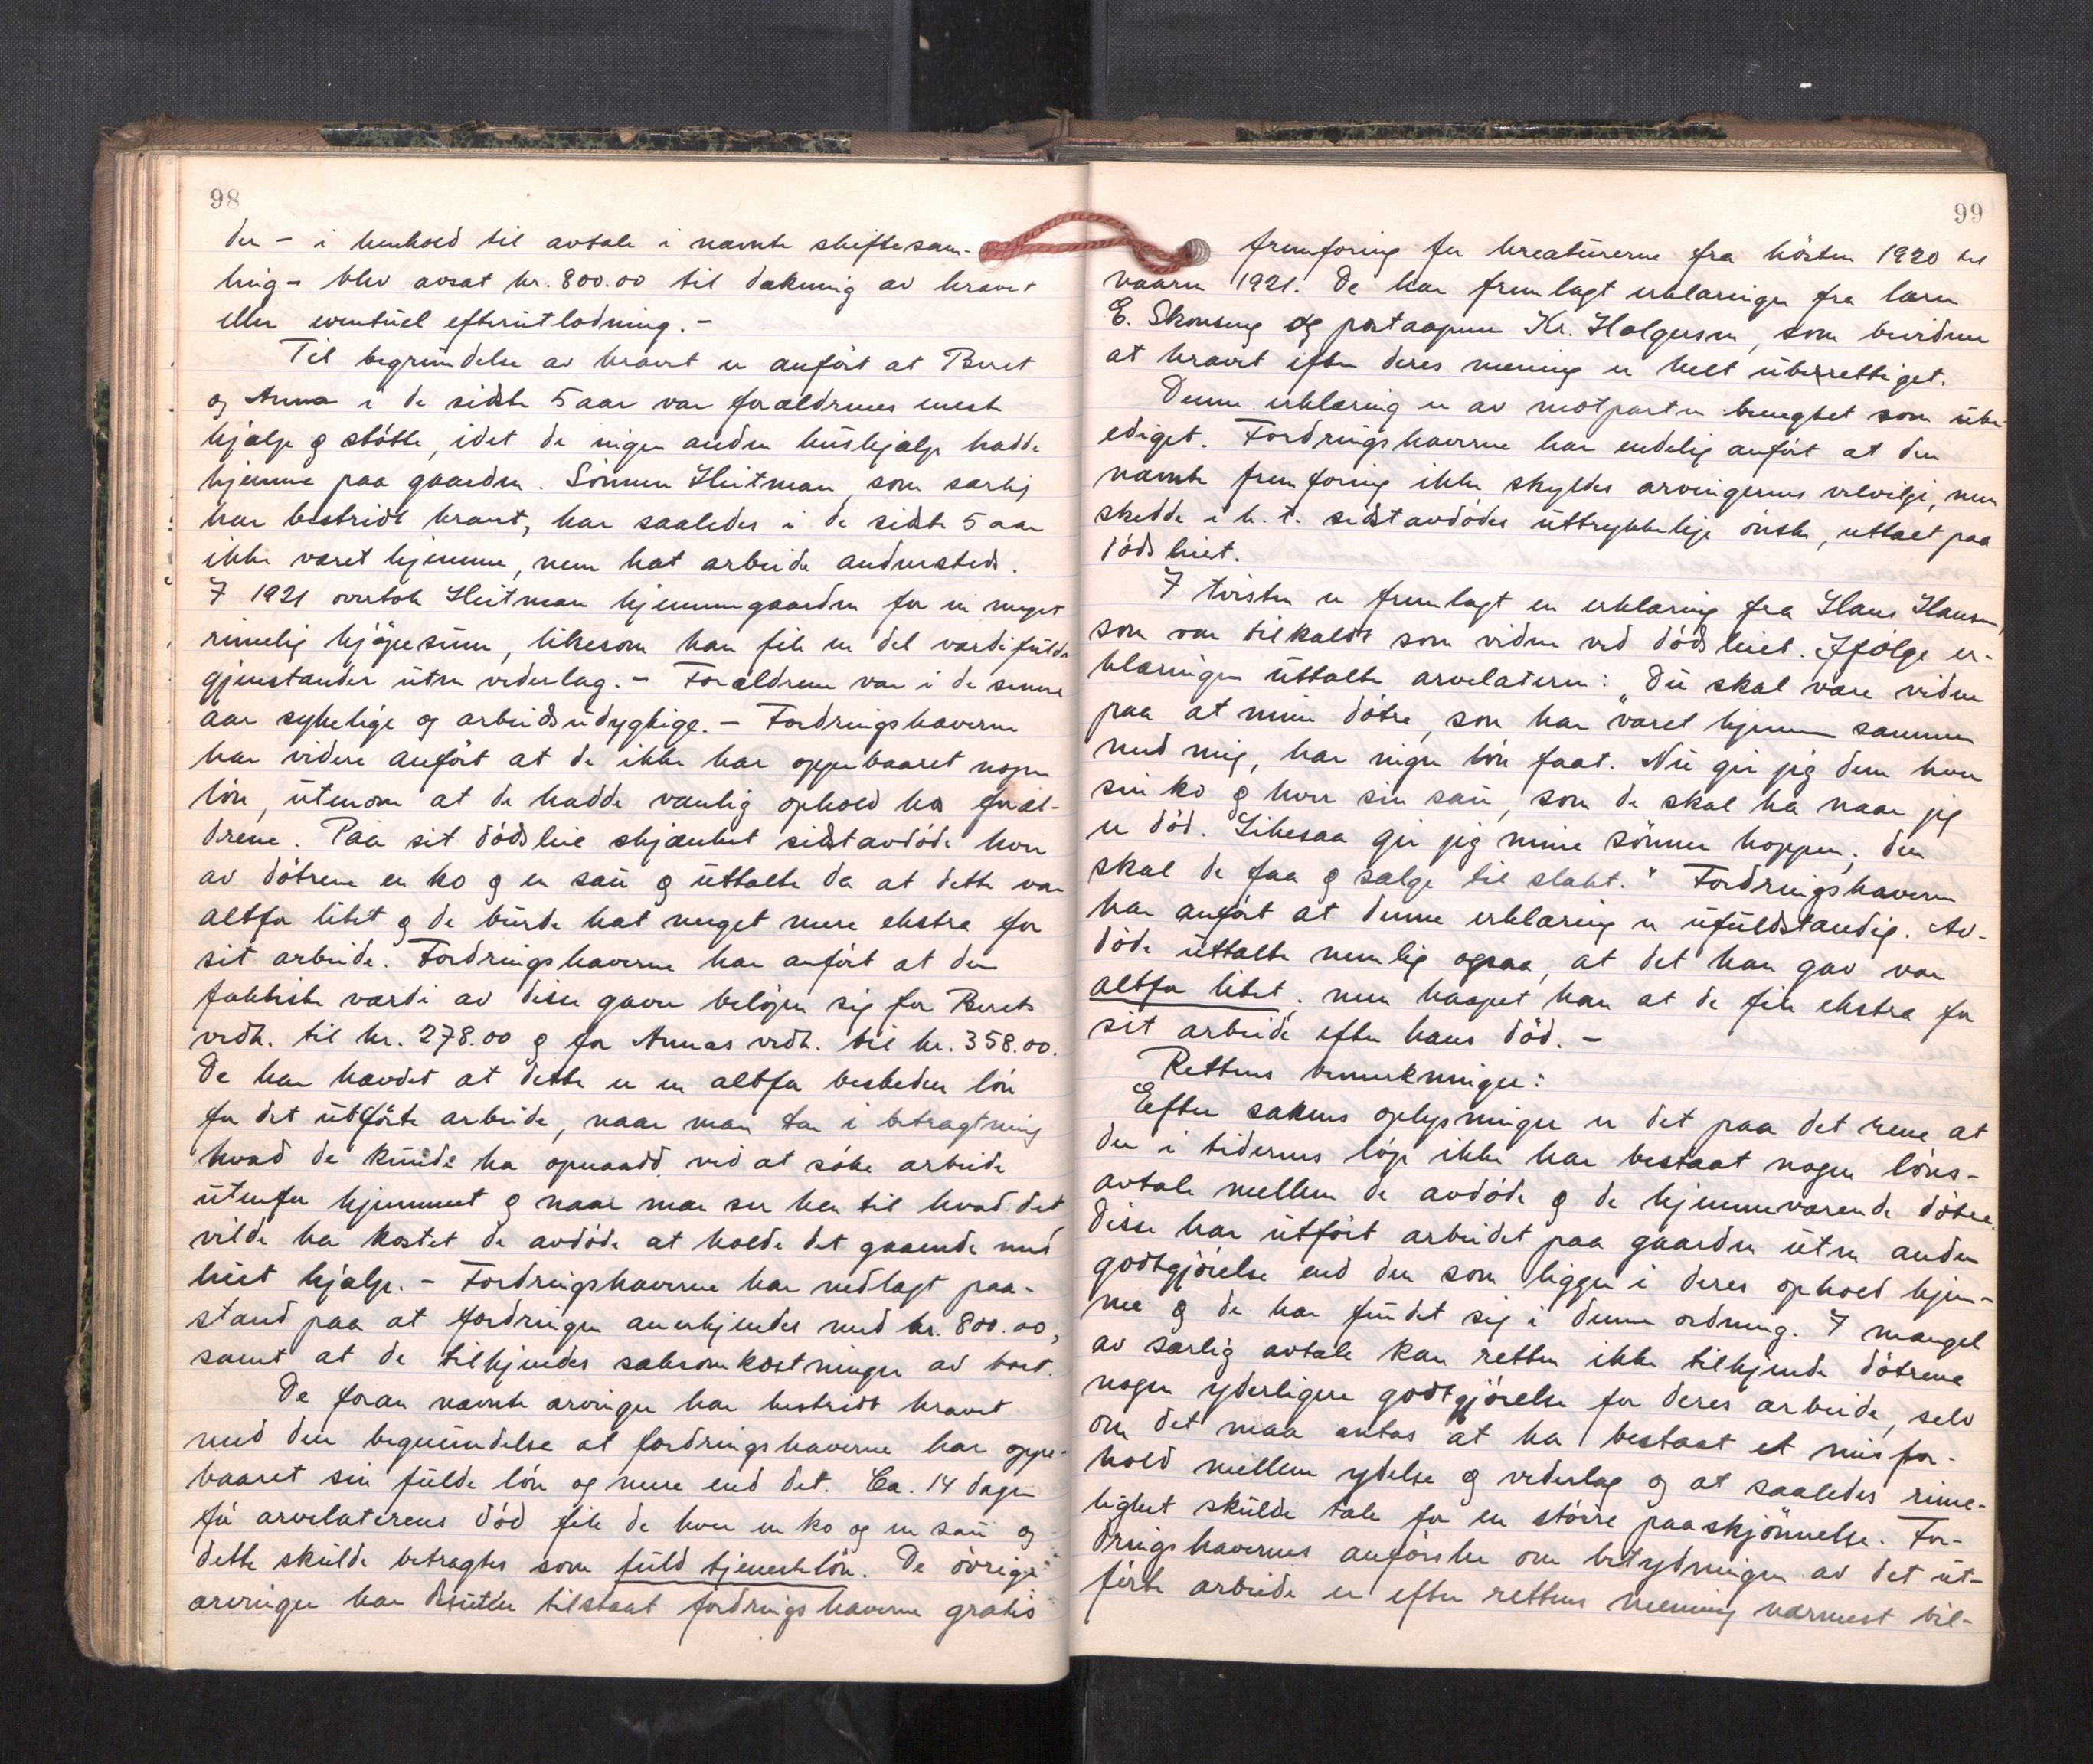 98
der - i henhold til avtale i nævnte skiftesam-
ling - blev avsat kr. 800.00 til dækning av kravet
eller eventuel efterutlodning. -
Til begrundelse av kravet er anført at Beret
og Anna i de sidste 5 aar var forældrenes eneste
hjælp og støtte, idet de ingen anden hushjælp hadde
hjemme paa gaarden. Sønnen Heitman, som særlig
har bestridt kravet, har saaledes i de sidste 5 aar
ikke været hjemme, men hat arbeide andensteds.
I 1921 overtok Heitman hjemmegaarden for en meget
rimelig kjøpesum, likesom han fik en del værdifulde
gjenstander uten vederlag. - Forældrene var i de senere
aar sykelige og arbeidsudygtige. - Fordringshaverne
har videre anført at de ikke har oppebaaret nogen
løn, utenom at de hadde vanlig ophold hos foræl-
drene. Paa sit dødsleie skjænket sidstavdøde hver
av døtrene en ko og en sau og uttalte da at dette var
altfor litet og de burde hat meget mere ekstra for
sit arbeide. Fordringshaverne har anført at den
faktiske værdi av disse gaver beløper sig for Berets
vedk. til kr. 278.00 og for Annas vedk. til kr. 358.00.
De har hævdet at dette er en altfor beskeden løn
for det utførte arbeide, naar man tar i betragtning
hvad de kunde ha opnaadd ved at søke arbeide
utenfor hjemmet og naar man ser hen til hvad det
vilde ha kostet de avdøde at holde det gaaende med
leiet hjælp. - Fordringshaverne har nedlagt paa-
stand paa at fordringen anerkjendes med kr. 800.00,
samt at de tilkjendes saksomkostninger av boet.
De foran nævnte arvinger har bestridt kravet
med den begrundelse at fordringshaverne har oppe-
baaret sin fulde løn og mere end det. Ca. 14 dager
før arvelaterens død fik de hver en ko og en sau og
dette skulde betragtes som fuld tjenesteløn. De øvrige
arvinger har desuten tilstaat fordringshaverne gratis
99
fremforing for kreaturerne fra høsten 1920 til
vaaren 1921. De har fremlagt erklæringer fra lærer
E. Skonseng og postaapner Kr. Holgersen, som bevidner
at kravet efter deres mening er helt uberettiget.
Denne erklæring er av motparten benegtet som ube-
ediget. Fordringshaverne har endelig anført at den
nævnte fremforing ikke skyldes arvingernes velvilje, men
skedde i h. t. sidstavdødes uttrykkelige ønske, uttalt paa
dødsleiet.
I tvisten er fremlagt en erklæring fra Hans Hansen,
som var tilkaldt som vidne ved dødsleiet. Ifølge er-
klæringen uttalte arvelateren: "Du skal være vidne
paa at mine døtre, som har været hjemme sammen
med mig, har ingen løn faat. Nu gir jeg dem hver
sin ko og hver sin sau, som de skal ha naar jeg
er død. Likesaa gir jeg mine sønner hoppen, den
skal de faa og sælge til slakt." Fordringshaverne
har anført at denne erklæring er ufuldstændig. Av-
døde uttalte nemlig ogsaa, at det han gav var
altfor litet, men haapet han at de fik ekstra for
sit arbeide efter hans død. -
Rettens bemerkninger:
Efter sakens oplysninger er det paa det rene at
der i tidernes løp ikke har bestaat nogen løns-
avtale mellem de avdøde og de hjemmeværende døtre.
Disse har utført arbeidet paa gaarden uten anden
godtgjørelse end den som ligger i deres ophold hjem-
me og de har fundet sig i denne ordning. I mangel
av særlig avtale kan retten ikke tilkjende døtrene
nogen yderligere godtgjørelse for deres arbeide, selv
om det maa antas at ha bestaat et misfor-
hold mellem ydelse og vederlag og at saaledes rime-
lighet skulde tale for en større paaskjønnelse. For-
dringshavernes anførsler om betydningen av det ut-
førte arbeide er efter rettens mening nærmest til-